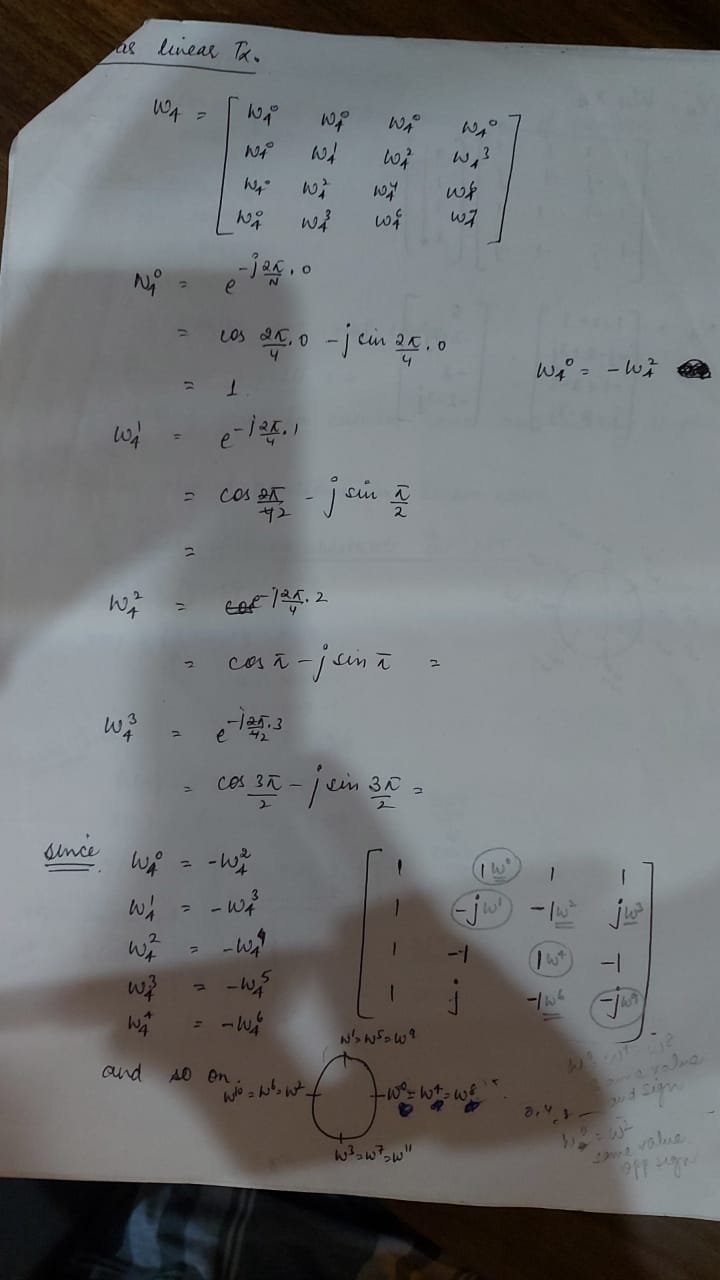 as linear Tx.
W₄ = [ W₄⁰ W₄⁰ W₄⁰ W₄⁰
W₄⁰ W₄¹ W₄² W₄³
W₄⁰ W₄² W₄⁴ W₄⁶
W₄⁰ W₄³ W₄⁶ W₄⁹ ]
W₄⁰ = e^(-j 2π/N . 0)
= cos 2π/4 . 0 - j sin 2π/4 . 0
W₄⁰ = -W₄²
= 1.
W₄¹ = e^(-j 2π/4 . 1)
= cos 2π/42 - j sin π/2
=
W₄² = e^(-j 2π/4 . 2)
= cos π - j sin π =
W₄³ = e^(-j 2π/42 . 3)
= cos 3π/2 - j sin 3π/2 =
since W₄⁰ = -W₄²
W₄¹ = -W₄³
W₄² = -W₄⁴
W₄³ = -W₄⁵
W₄⁴ = -W₄⁶
and so on.
[ 1 1 W⁰ 1 1
1 -j W¹ -1 W² j W³
1 -1 1 W⁴ -1
1 j -1 W⁶ -j W⁹ ]
W¹ = W⁵ = W⁹
W¹⁰ = W⁶ = W² W⁰ = W⁴ = W⁸
W³ = W⁷ = W¹¹